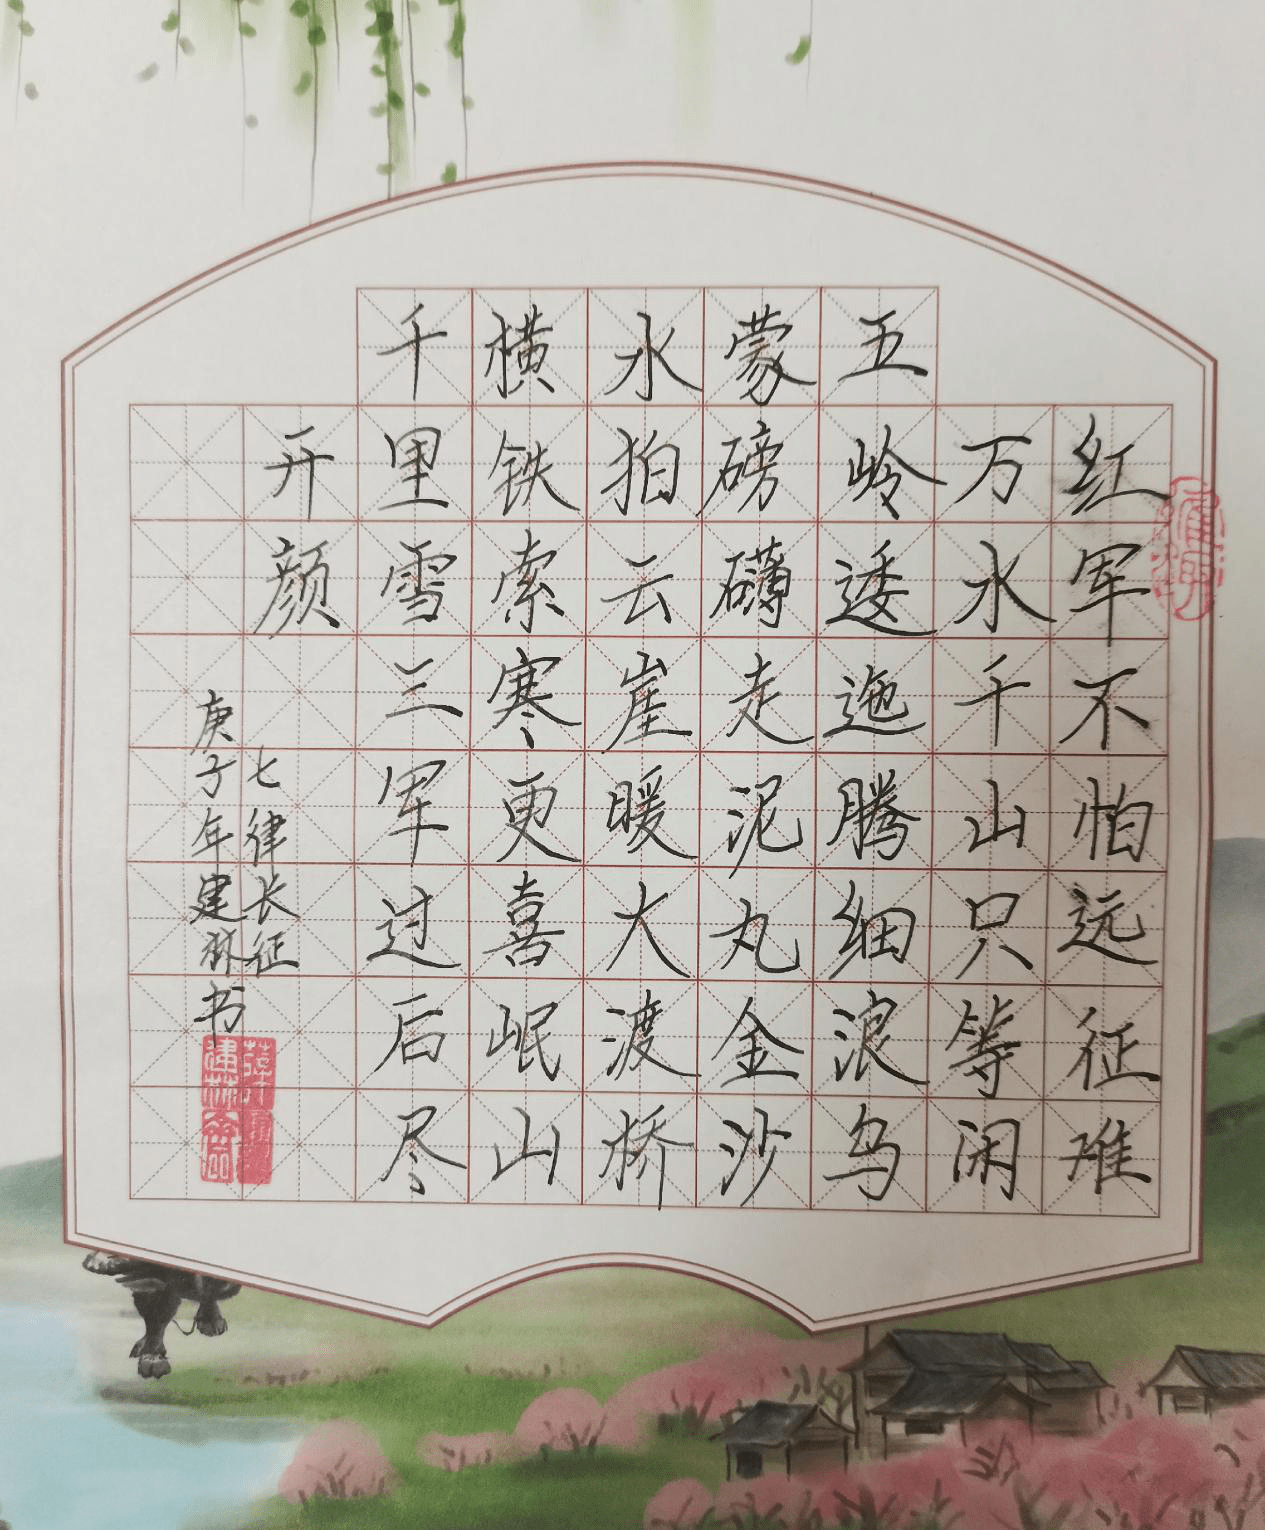 红军不怕远征难
万水千山只等闲
五岭逶迤腾细浪乌
蒙磅礴走泥丸金沙
水拍云崖暖大渡桥
横铁索寒更喜岷山
千里雪三军过后尽
开颜
七律长征
庚子年建林书